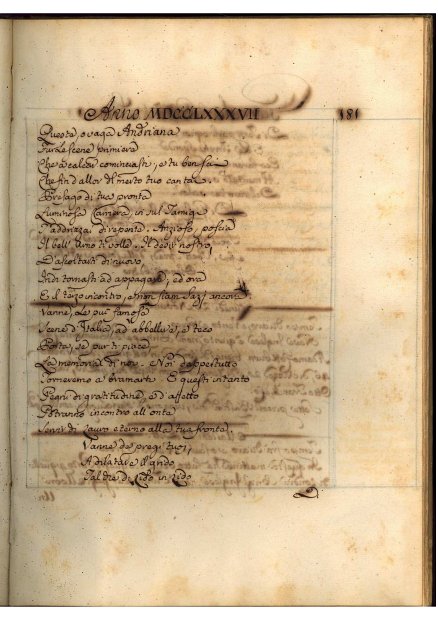 Anno MDCCLXXXVII 181
Queste, o vaga Andriana
Fur le scene primiera
Che a calcar cominciasti, e tu ben sei
Che fin d'allor il merto tuo canta.
Presago di tua pronta
Luminosa Carriera, in sul Tamigi
T'addrizzai di repente. Anzioso, poscia
Il bell'Arno ti volle. Il desir nostro,
D'ascoltarti di nuovo,
Indi tornasti ad appagare, ed ora
E il terzo incontro, e non siam sazj ancora.
Vanne, a le più famose
Scene d'Italia, ad abbellire, e teco
Porta, se pur ti piace
La memoria di noi. Noi dappertutto
Torneremo a bramarti. E questi intanto
Pegni di gratitudine, ed affetto
Potranno incontro all'onta
Servir di Lauro eterno alla tua fronta.
Vanne de' pregi tuoi,
A dilatare il grido
Tal che di Lido in Lido